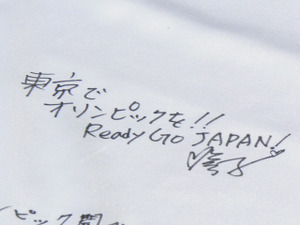 東京で
オリンピックを!!
Ready Go JAPAN!
ピック開